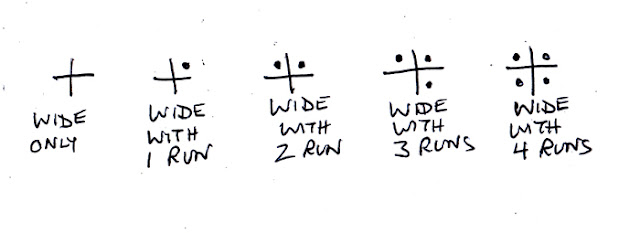 WIDE
ONLY
WIDE
WITH
1 RUN
WIDE
WITH
2 RUN
WIDE
WITH
3 RUNS
WIDE
WITH
4 RUNS